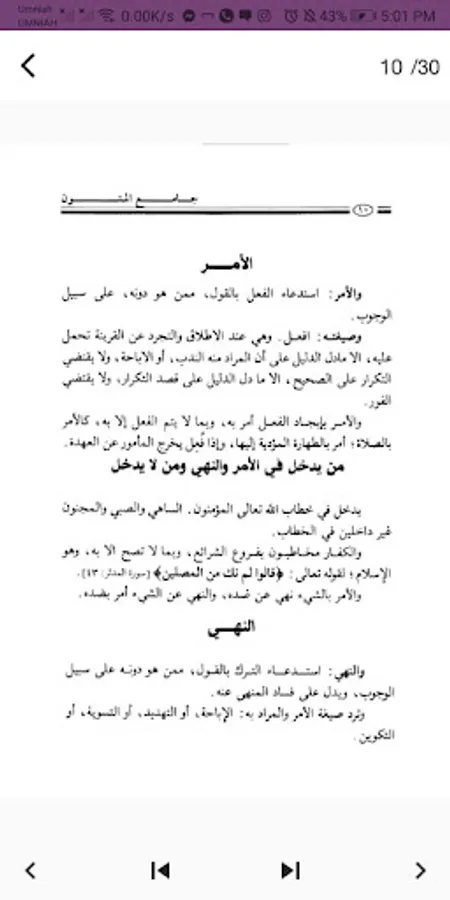 Umniah
UMNIAH
0.00K/s
43%
5:01 PM
10 /30
جامع المتون
١٠
الأمر
والأمر: استدعاء الفعل بالقول، ممن هو دونه، على سبيل
الوجوب.
وصيغته: افعل. وهي عند الاطلاق والتجرد عن القرينة تحمل
عليه، الا مادل الدليل على أن المراد منه الندب، أو الاباحة، ولا يقتضي
التكرار على الصحيح، الا ما دل الدليل على قصد التكرار، ولا يقتضي
الفور.
والأمر بإيجاد الفعل أمر به، وبما لا يتم الفعل إلا به، كالأمر
بالصلاة؛ أمر بالطهارة المؤدية إليها، وإذا فُعِل يخرج المأمور عن العهدة.
من يدخل في الأمر والنهي ومن لا يدخل
يدخل في خطاب الله تعالى المؤمنون. الساهي والصبي والمجنون
غير داخلين في الخطاب.
والكفار مخاطبون بفروع الشرائع، وبما لا تصح الا به، وهو
الإسلام؛ لقوله تعالى: ﴿قالوا لم نك من المصلين﴾ [سورة المدثر: ٤٣].
والأمر بالشيء نهي عن ضده، والنهي عن الشيء أمر بضده.
النهي
والنهي: استدعاء الترك بالقول، ممن هو دونه على سبيل
الوجوب، ويدل على فساد المنهى عنه.
وترد صيغة الأمر والمراد به: الإباحة، أو التهديد، أو التسوية، أو
التكوين.